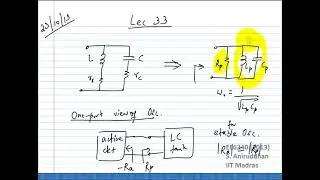 23/10/13
Lec 33
L
C
r_L
r_C
R_p
L_p
C_p
ω₀ = 1/√(L_p C_p)
One-port view of Osc.
active ckt
LC tank
-R_a
R_p
for stable Osc.
|R_a| = |R_p|
S. Aniruddhan
IIT Madras